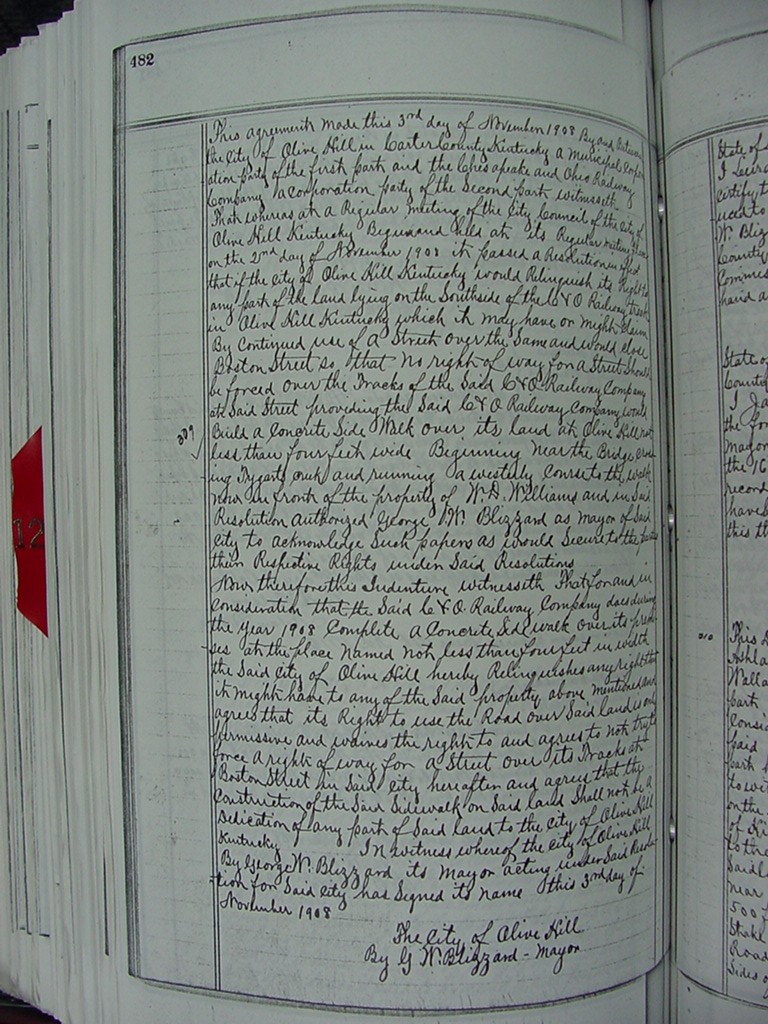 482
This agreement made this 3rd day of November 1908 By and Between
the City of Olive Hill in Carter County Kentucky a Municipal Corpor
ation party of the first part and the Chesapeake and Ohio Railway
Company a corporation party of the second part witnesseth
That whereas at a Regular meeting of the City Council of the City of
Olive Hill Kentucky Begun and held at its Regular meeting place
on the 2nd day of November 1908 it passed a Resolution in effect
that if the City of Olive Hill Kentucky would Relinquish its Right to
any part of the land lying on the Southside of the C&O Railway track
in Olive Hill Kentucky which it may have or might claim
By Continued use of a Street over the Same and would close
Boston Street so that no right of way for a Street Should
be forced over the Tracks of the Said C&O Railway Company
at Said Street providing the Said C&O Railway Company would
Build a Concrete Side Walk over its land at Olive Hill not
less than four feet wide Beginning Near the Bridge cross
ing Tygarts creek and running a westerly Course to the walk
now in front of the property of W.H. Williams and in Said
Resolution Authorized George W. Blizzard as Mayor of Said
City to acknowledge Such papers as would Secure to the parties
their Respective Rights under Said Resolutions
Now therefore this Indenture witnesseth That for and in
Consideration that the Said C&O. Railway Company does during
the year 1908 Complete a Concrete Side walk over its premi
ses at the place Named not less than four feet in width
the Said City of Olive Hill hereby Relinquishes any right that
it might have to any of the Said property above mentioned and
agrees that its Right to use the Road over Said land is only
permissive and waives the right to and agrees to not try to
force a right of way for a Street over its Tracks at
Boston Street in Said City hereafter and agrees that the
Construction of the Said Sidewalk on Said land Shall not be a
Dedication of any part of Said land to the City of Olive Hill
Kentucky In witness whereof the City of Olive Hill
By George W. Blizzard its Mayor acting under Said Resolu
tion for Said City has Signed its name this 3rd day of
November 1908
The City of Olive Hill
By G W. Blizzard - Mayor
12
State of
I
certify t
W. Bliz
County
Commis
hand a
State of
County
I Ja
the for
Mayor
the 16
record
have
this th
This
Ashla
Walla
part
Consi
paid
part
to wit
on the
of Ki
to the
Said
near
500 f
Stake
Road
Sides o